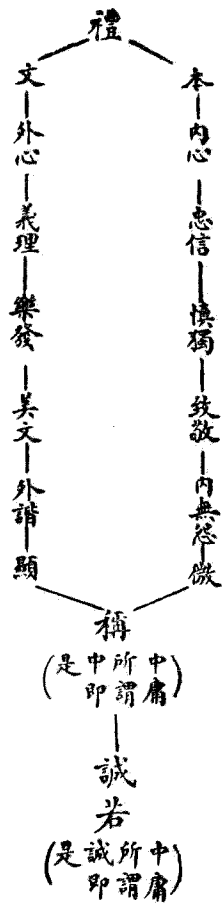 禮
本
內心
忠信
慎獨
致敬
內無怨
微
文
外心
義理
樂發
美文
外諧
顯
稱
(中庸所謂中即是)
誠若
(中庸所謂誠即是)